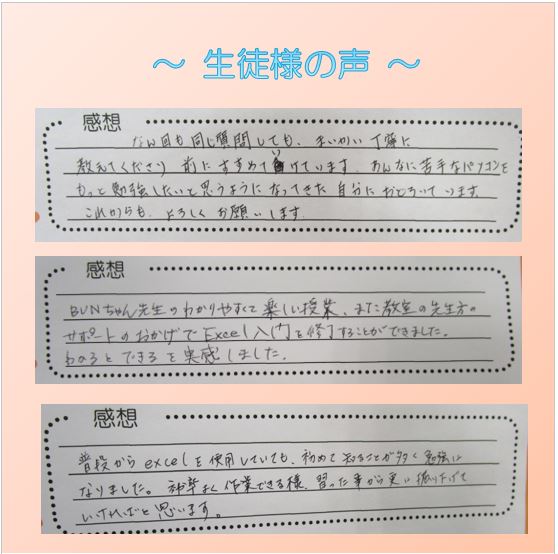 ～ 生徒様の声 ～
感想
なん回も同じ質問しても、まいかい丁寧に
教えてくださり 前にすすめて いけています。あんなに苦手なパソコンを
もっと勉強したいと思うようになってきた自分におどろいています。
これからも、よろしくお願いします。
感想
BUNちゃん先生のわかりやすくて楽しい授業、また教室の先生方の
サポートのおかげでExcel入門を修了することができました。
わかるとできるを実感しました。
感想
普段からexcelを使用していても、初めて知ることが多く勉強に
なりました。効率よく作業できる様、習った事から更に掘り下げて
いければと思います。